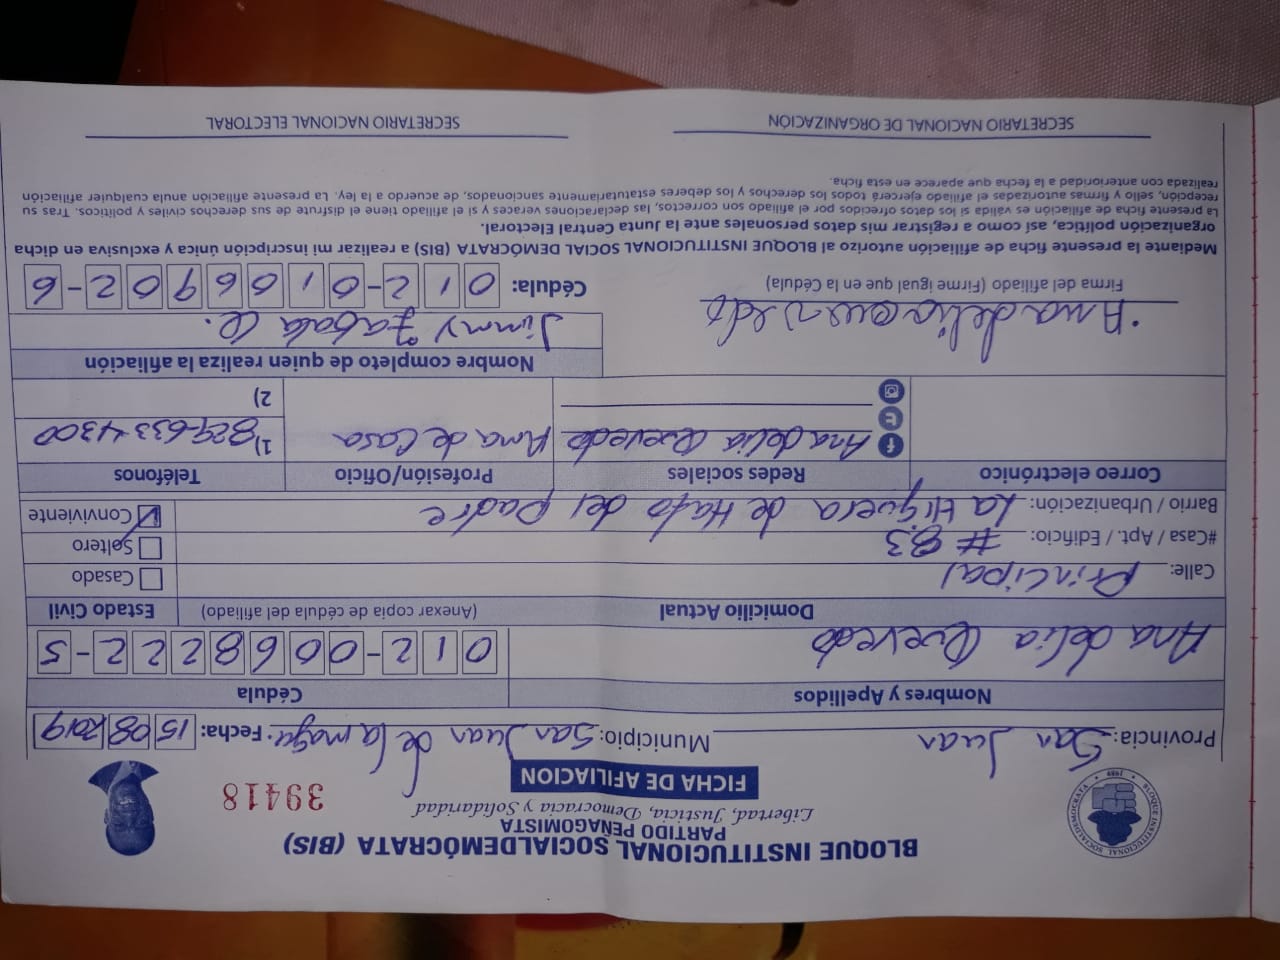 BLOQUE INSTITUCIONAL SOCIALDEMÓCRATA (BIS)
PARTIDO PEÑAGOMISTA
Libertad, Justicia, Democracia y Solidaridad
BLOQUE INSTITUCIONAL SOCIALDEMOCRATA
1989
FICHA DE AFILIACION
39418
Provincia: San Juan Municipio: San Juan de la magu. Fecha: 15 08 2019
Nombres y Apellidos Cédula
Ana delia Quevedo 012-0068222-5
Domicilio Actual (Anexar copia de cédula del afiliado) Estado Civil
Calle: Principal Casado
#Casa / Apt. / Edificio: # 83 Soltero
Barrio / Urbanización: La Higuera de Hato del padre Conviviente
Correo electrónico Redes sociales Profesión/Oficio Teléfonos
Ana delia Quevedo Ama de Casa 1) 829-633-4300
2)
Nombre completo de quien realiza la afiliación
Ana delia quevedo Jimmy Zabala
Firma del afiliado (Firme igual que en la Cédula) Cédula: 012-0106902-6
Mediante la presente ficha de afiliación autorizo al BLOQUE INSTITUCIONAL SOCIAL DEMÓCRATA (BIS) a realizar mi inscripción única y exclusiva en dicha
organización política, así como a registrar mis datos personales ante la Junta Central Electoral.
La presente ficha de afiliación es válida si los datos ofrecidos por el afiliado son correctos, las declaraciones veraces y si el afiliado tiene el disfrute de sus derechos civiles y políticos. Tras su
recepción, sello y firmas autorizadas el afiliado ejercerá todos los derechos y los deberes estatutariamente sancionados, de acuerdo a la ley. La presente afiliación anula cualquier afiliación
realizada con anterioridad a la fecha que aparece en esta ficha.
SECRETARIO NACIONAL DE ORGANIZACIÓN SECRETARIO NACIONAL ELECTORAL